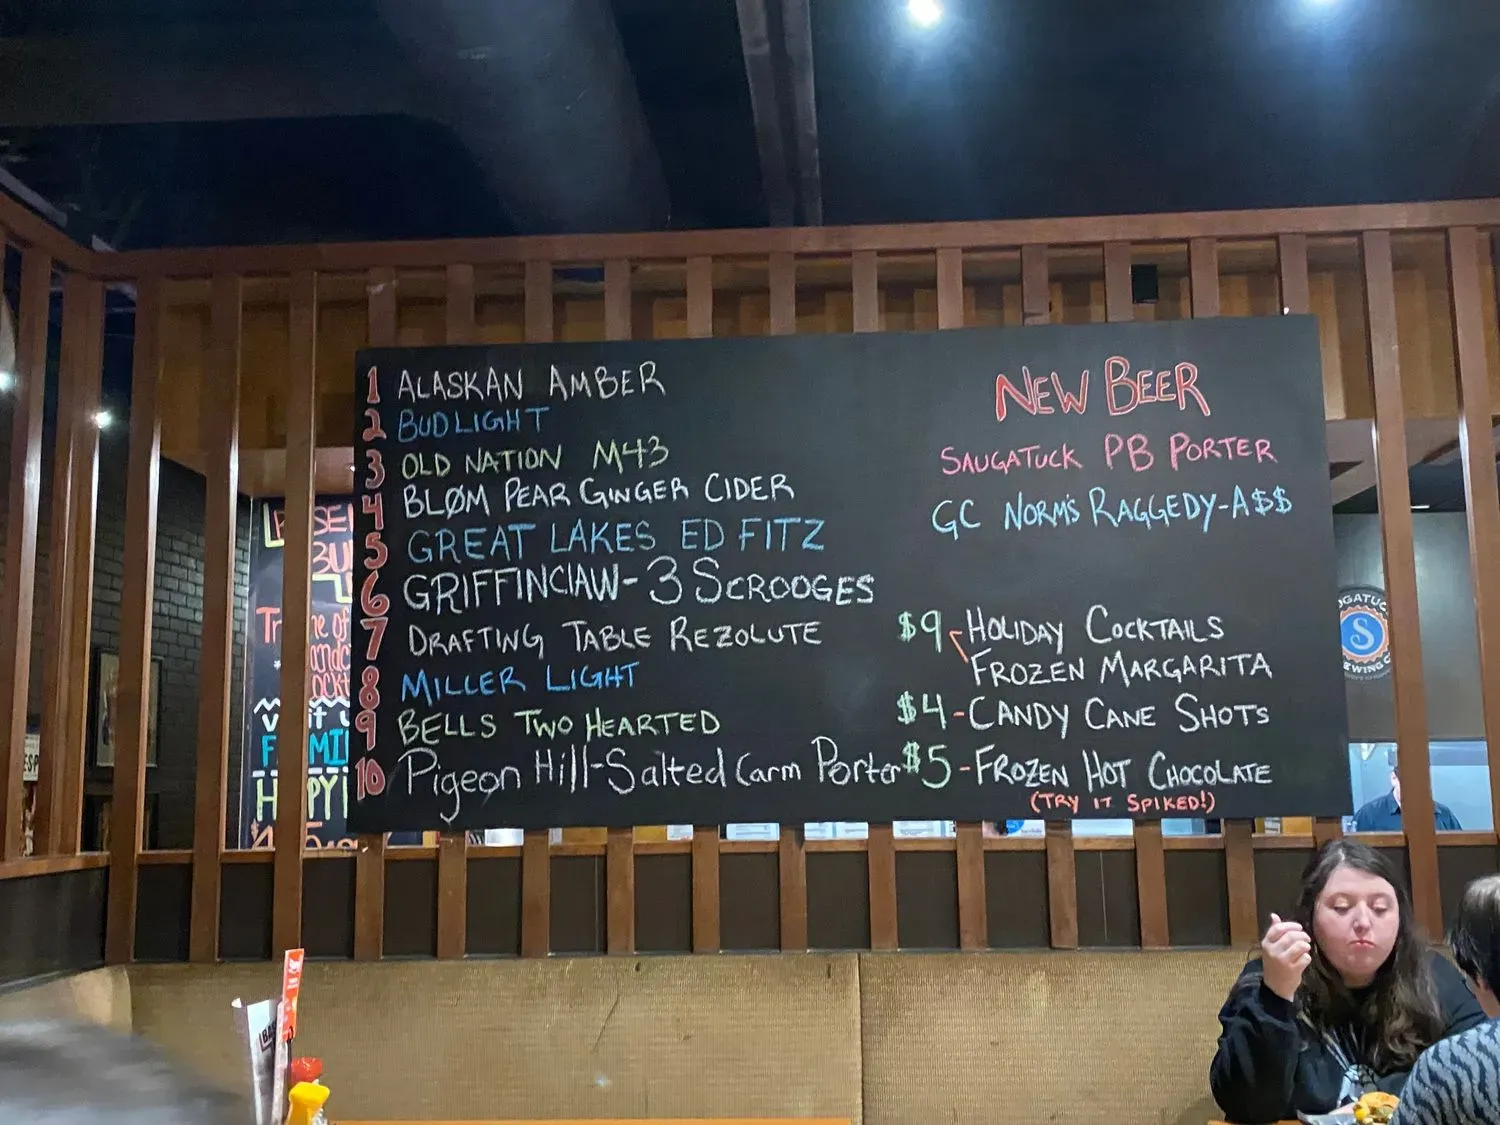 1 ALASKAN AMBER
2 BUD LIGHT
3 OLD NATION M43
4 BLØM PEAR GINGER CIDER
5 GREAT LAKES ED FITZ
6 GRIFFINCLAW - 3 SCROOGES
7 DRAFTING TABLE REZOLUTE
8 MILLER LIGHT
9 BELLS TWO HEARTED
10 Pigeon Hill - Salted Carm Porter
NEW BEER
SAUGATUCK PB PORTER
GC NORM'S RAGGEDY-A$$
$9 HOLIDAY COCKTAILS
FROZEN MARGARITA
$4 - CANDY CANE SHOTS
$5 - FROZEN HOT CHOCOLATE
(TRY IT SPIKED!)
S